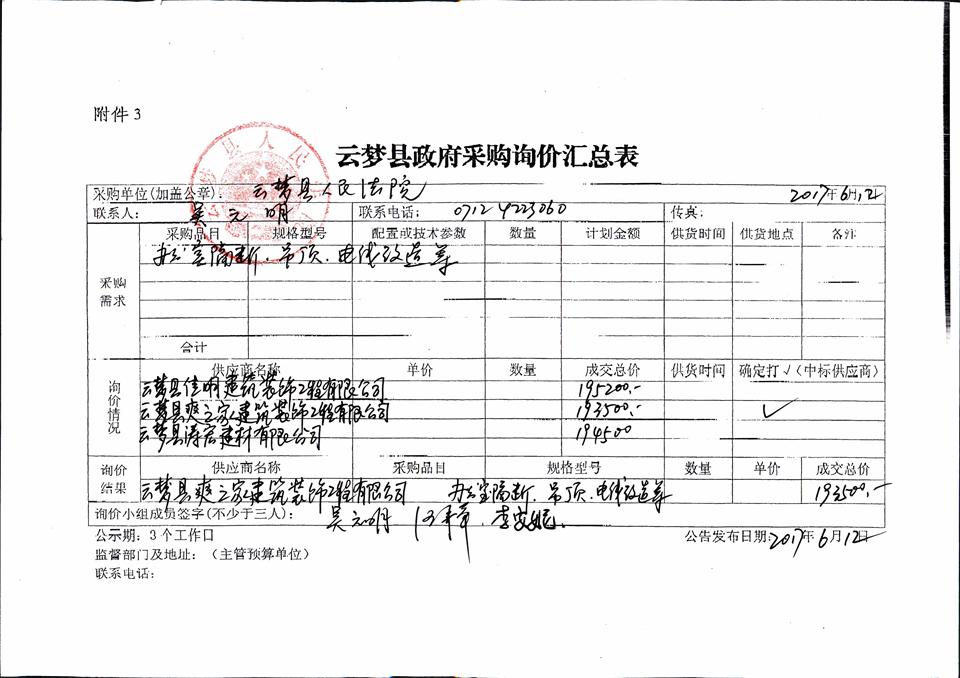 附件 3
云梦县政府采购询价汇总表
采购单位(加盖公章): 云梦县人民法院 2017年6月12日
联系人: 吴元明 联系电话: 0712 4223060 传真:
采购需求 采购品目 规格型号 配置或技术参数 数量 计划金额 供货时间 供货地点 备注
办公室隔断、吊顶、电线改造等
合计
询价情况 供应商名称 单价 数量 成交总价 供货时间 确定打√(中标供应商)
云梦县佳明建筑装饰工程有限公司 195200.-
云梦县爽之家建筑装饰工程有限公司 193500.- ✓
云梦县涛宏建材有限公司 194500
询价结果 供应商名称 采购品目 规格型号 数量 单价 成交总价
云梦县爽之家建筑装饰工程有限公司 办公室隔断、吊顶、电线改造等 193500.-
询价小组成员签字(不少于三人): 吴元明
公示期: 3 个工作日 公告发布日期: 2017年6月12日
监督部门及地址: (主管预算单位)
联系电话: